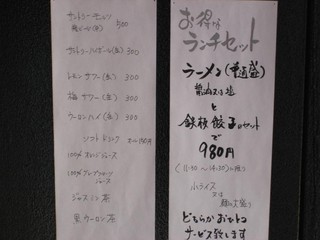 サントリー モルツ
生ビール(中) 500
サントリーハイボール(生) 300
レモンサワー(生) 300
梅サワー(生) 300
ウーロンハイ(生) 300
ソフトドリンク
100% オレンジジュース
100% グレープフルーツ
ジュース
ジャスミン茶
黒ウーロン茶
お得な
ランチセット
ラーメン(普通盛)
醤油又は塩
と
鉄板餃子のセット
で
980円
(11:30 〜 14:30)に限り
小ライス
又は
麺の大盛り
どちらかおひとつ
サービス致します